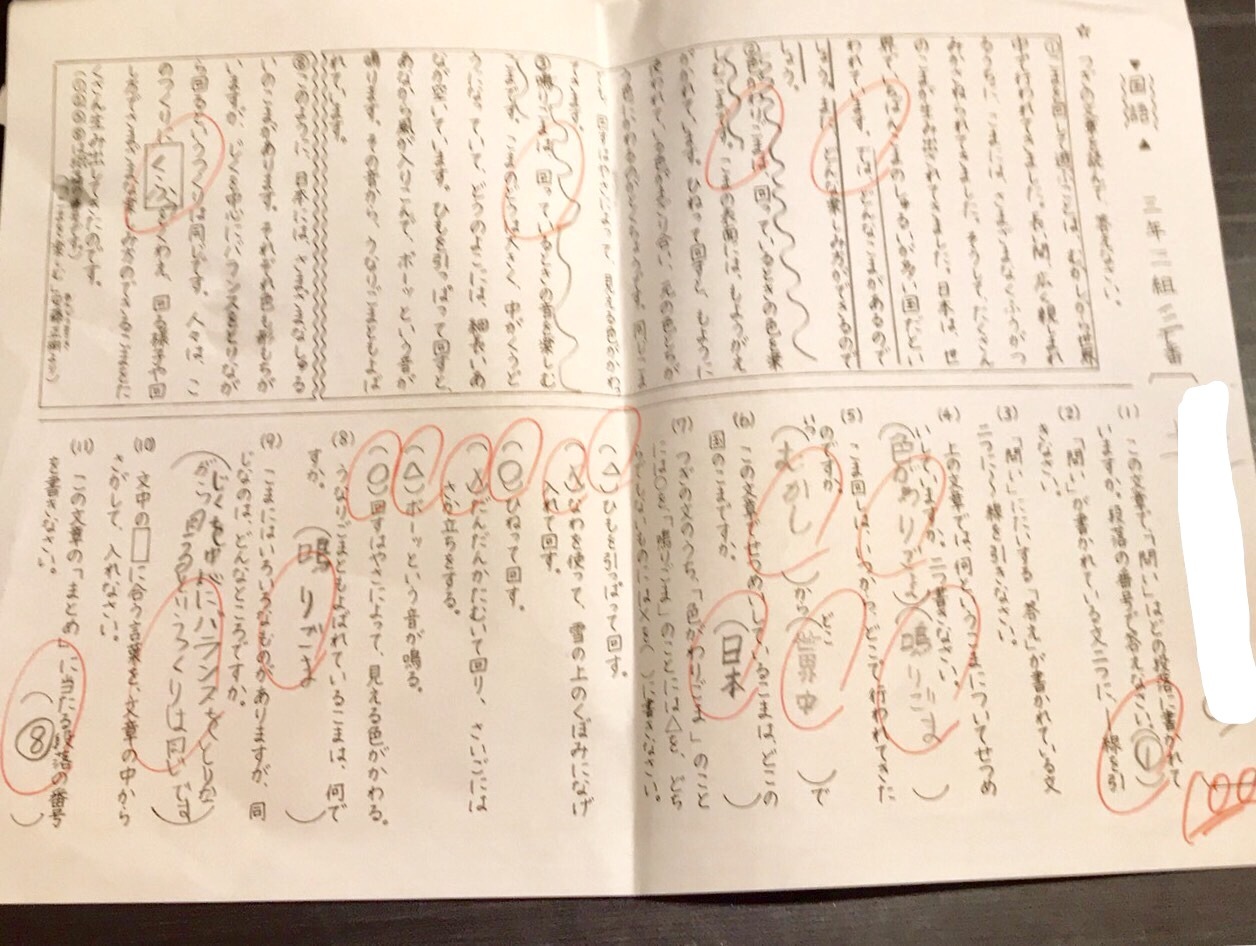 ▼国語▲ 三年三組 二十番
☆ つぎの文章を読んで、答えなさい。
①こまを回して遊ぶことは、むかしから世界
中で行われてきました。長い間、広く親しまれ
るうちに、こまには、さまざまなくふうがつ
みかさねられてきました。そうして、たくさん
のこまが生み出されてきました。日本は、世
界でもこまのしゅるいが多い国だといい
われています。では、どんなこまがあるので
しょう。また、どんな楽しみ方ができるので
しょう。
色がわりごまは、回っているときの色を楽
しむこまです。こまの表面には、もようがえ
がかれています。ひねって回すと、もように
回すはやさによって、見える色がかわ
ってきます。
③鳴りごまは、回っているときの音を楽しむ
こまです。こまのどうは大きく、中がくうど
うになっていて、どうのよこには、細長いあ
なが空いています。ひもを引っぱって回すと、
あなから風が入りこんで、ボーッという音が
鳴ります。その音から、うなりごまともよば
れています。
⑧このように、日本には、さまざまなしゅる
いのこまがあります。それぞれ色も形もちが
いますが、じくを中心にバランスをとりなが
ら回るというつくりは同じです。人々は、こ
のつくりにくふうをくわえ、回る様子や回
し方でさまざまな楽しみ方のできるこまをた
くさん生み出してきたのです。
(1) この文章で「問い」はどの段落に書かれて
いますか。段落の番号で答えなさい。(①)
(2) 「問い」が書かれている文二つに、線を引
きなさい。
(3) 「問い」にたいする「答え」が書かれている文
二つに〜線を引きなさい。
(4) 上の文章では、何というこまについてせつめ
いしていますか。二つ書きなさい。
(色がわりごま)(鳴りごま)
(5) こま回しは、いつから、どこで行われてきた
のですか。
いつ(むかし)から どこ(世界中)で
(6) この文章でせつめいしているこまは、どこの
国のこまですか。(日本)
(7) つぎの文のうち、「色がわりごま」のこと
には○を、「鳴りごま」のことには△を、どち
らでもないものには×を( )に書きなさい。
(△)ひもを引っぱって回す。
(×)なわを使って、雪の上のくぼみになげ
入れて回す。
(○)ひねって回す。
(×)だんだんかたむいて回り、さいごには
さか立ちをする。
(△)ボーッという音が鳴る。
(○)回すはやさによって、見える色がかわる。
(8) うなりごまともよばれているこまは、何で
すか。(鳴りごま)
(9) こまにはいろいろなものがありますが、同
じなのは、どんなところですか。
(じくを中心にバランスをとりな
がら回るというつくりは同じです)
(10) 文中の□に合う言葉を、文章の中から
さがして、入れなさい。
(11) この文章の「まとめ」に当たる段落の番号
を書きなさい。(⑧)
100